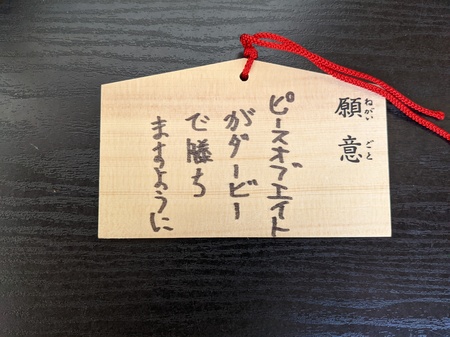 願意
ねがい
ごと
ピースオブエイト
がダービー
で勝ち
ますように